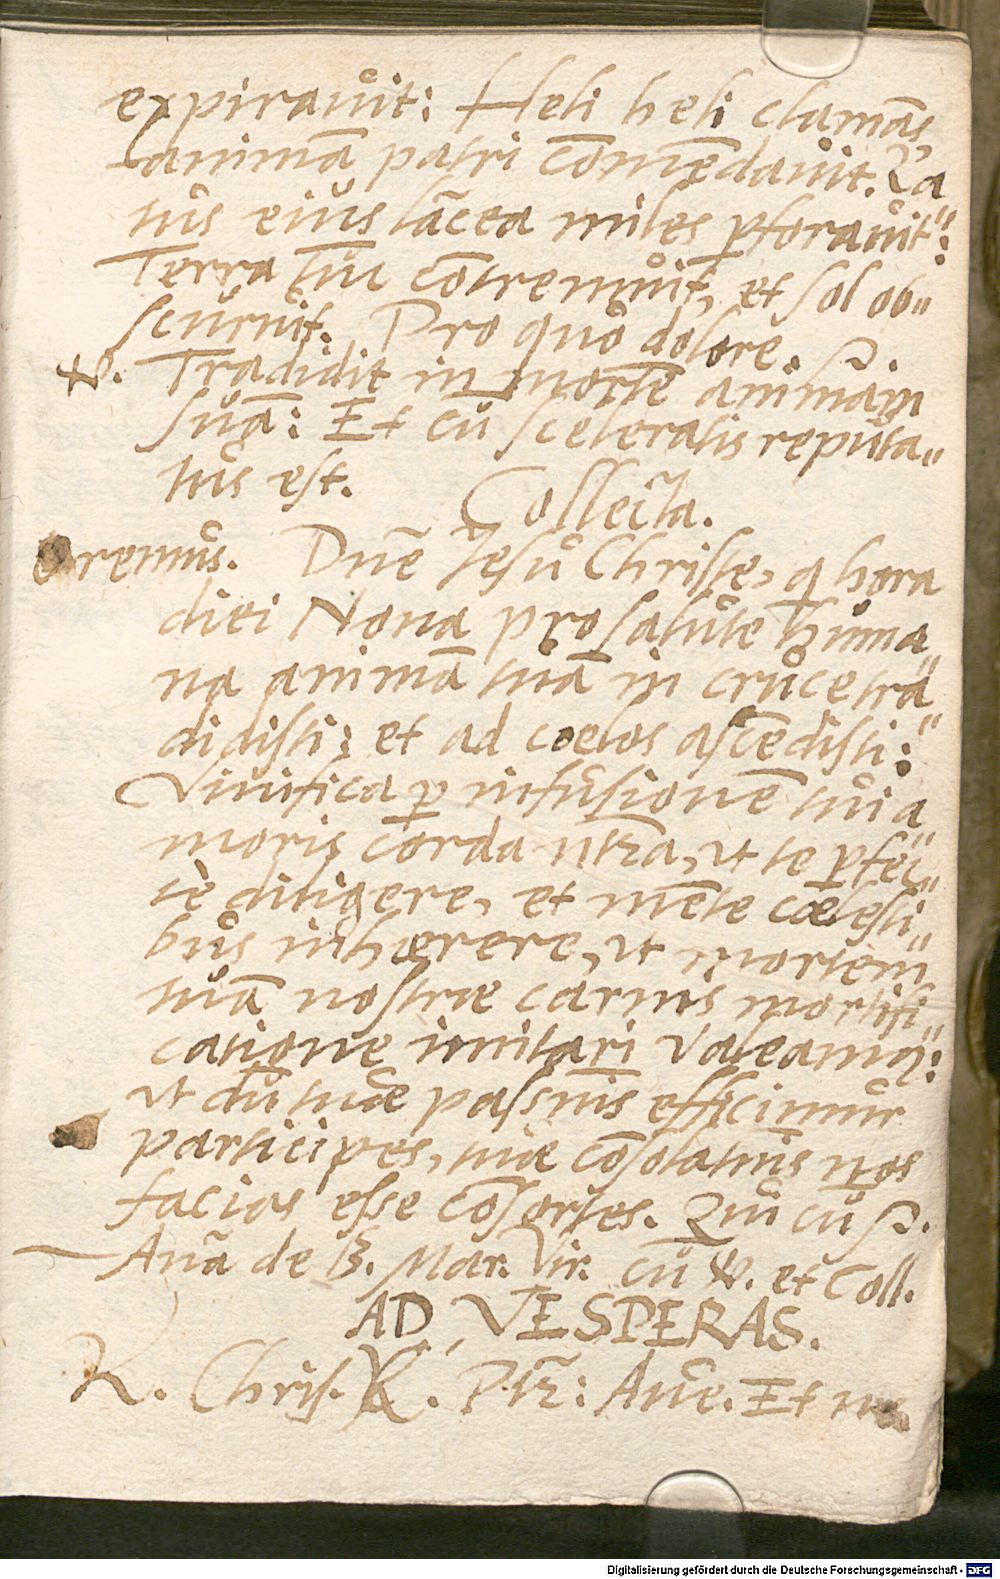 expirauit: Heli heli clamãs
animã patri cõmẽdauit. La
tus eius lãcea miles ꝑforauit":
Terra tũc cõtremuit, et sol ob"
scuruit. Pro quo dolore.
℣. Tradidit in mortẽ animam
suã: Et cũ sceleratis reputa"
tus est.
Collecta.
Oremus. Dñe Iesu Christe, q hora
diei Nona pro salute huma
na animã tuã in cruce tra"
didisti: et ad coelos ascẽdisti:"
Viuifica ꝑ infusionẽ tui a
moris corda nr̃a, ut te ꝑfec"
tè diligere, et mẽte cœlesti"
bus inhærere, ut mortem
tuã nostræ carnis mortifi"
catione imitari valeamq:
ut dũ tuæ passinis efficimur
participes, tuæ cõsolatiñis nos
facias esse cõsortes. Qui cũ
Anã de B. Mar. Vir. cũ ℣. et Coll.
AD VESPERAS.
K. Chris. K. Ptr̃: Aue. Et ne
Digitalisierung gefördert durch die Deutsche Forschungsgemeinschaft - DFG